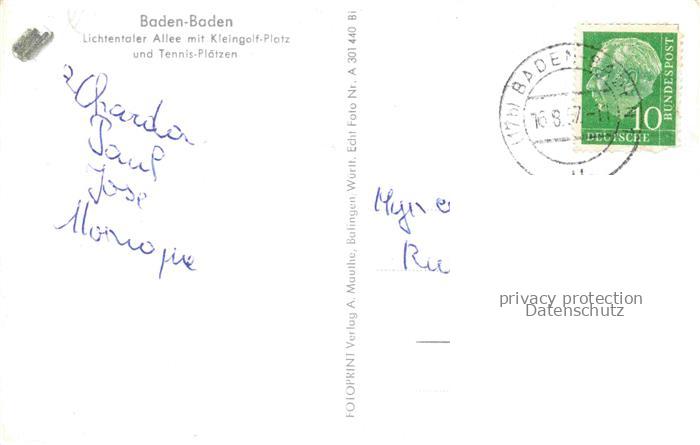 Baden-Baden
Lichtentaler Allee mit Kleingolf-Platz
und Tennis-Plätzen
Paul
Jose
Monique
FOTOPRINT Verlag A. Mauthe, Balingen Württ. Echt Foto Nr. A 301 440 Bi
(17b) BADEN-BADEN
16.8.57.-11
10
DEUTSCHE
BUNDESPOST
privacy protection
Datenschutz